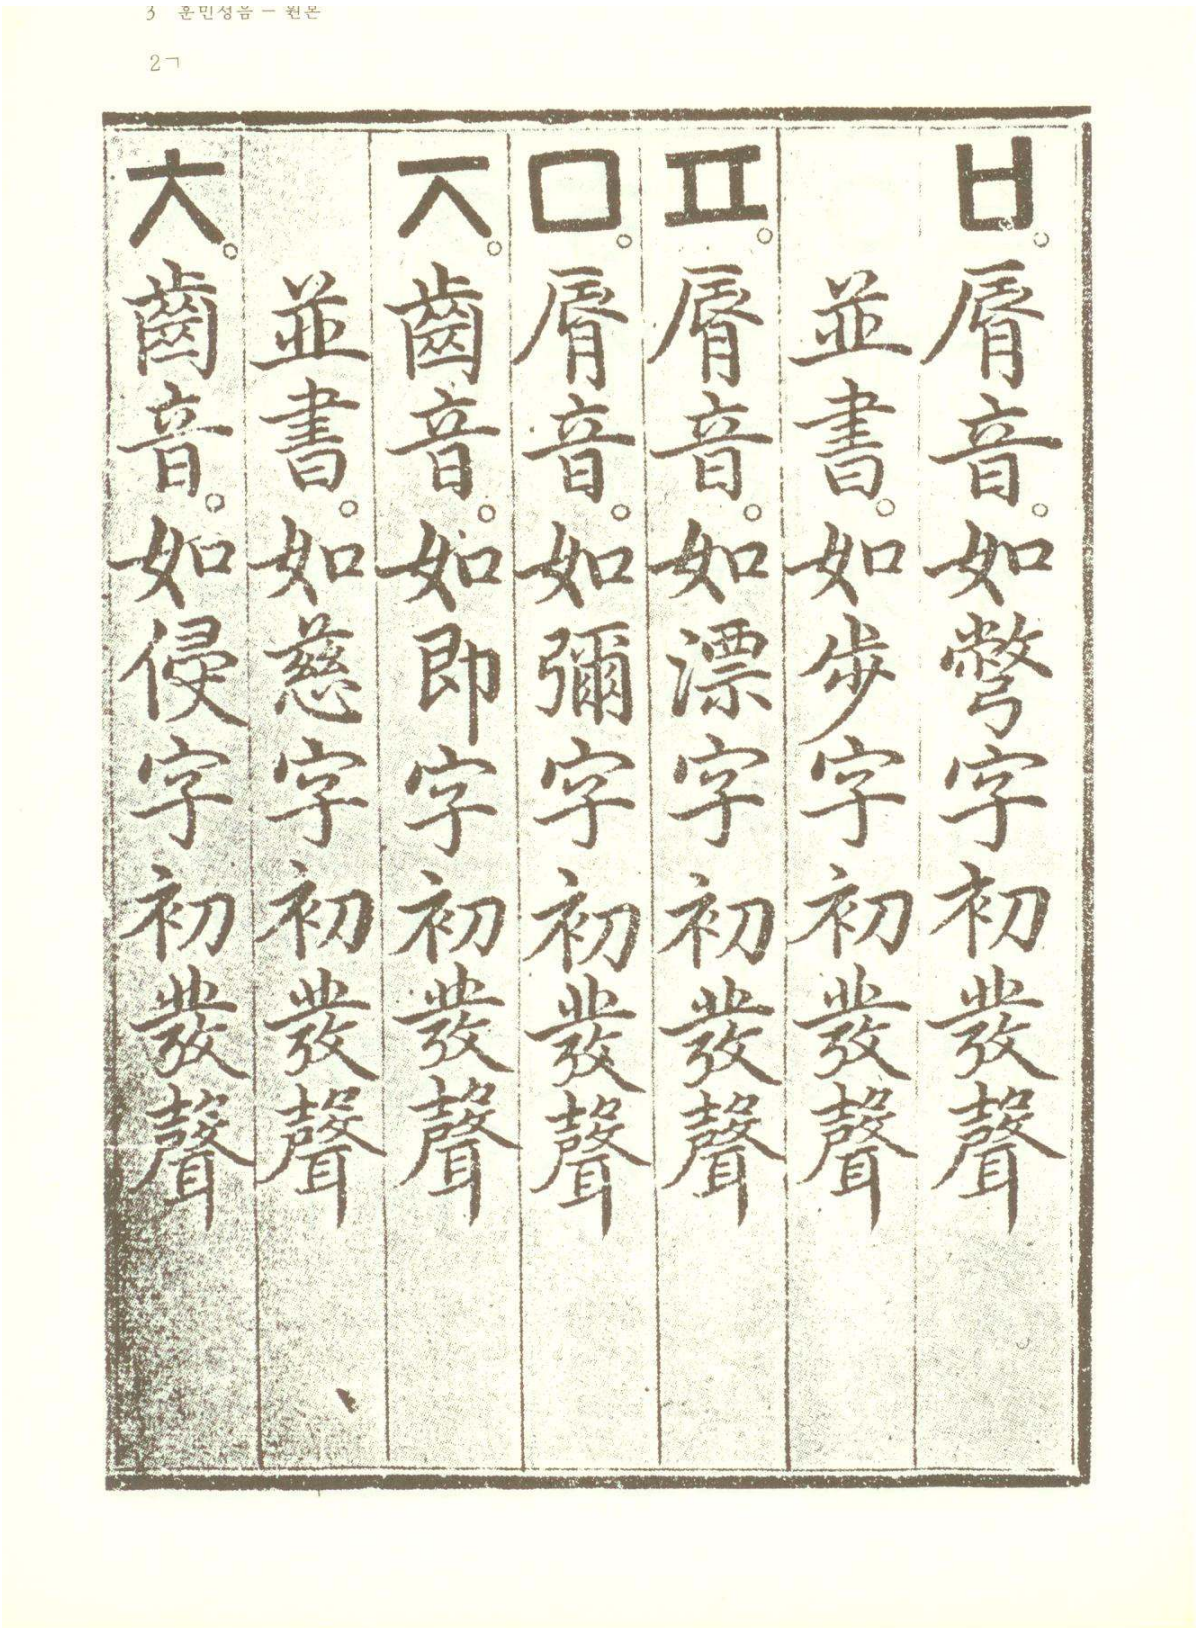 3 훈민정음 － 원본
2ㄱ
ㅂ。脣音。如彆字初發聲
並書。如步字初發聲
ㅍ。脣音。如漂字初發聲
ㅁ。脣音。如彌字初發聲
ㅈ。齒音。如即字初發聲
並書。如慈字初發聲
ㅊ。齒音。如侵字初發聲